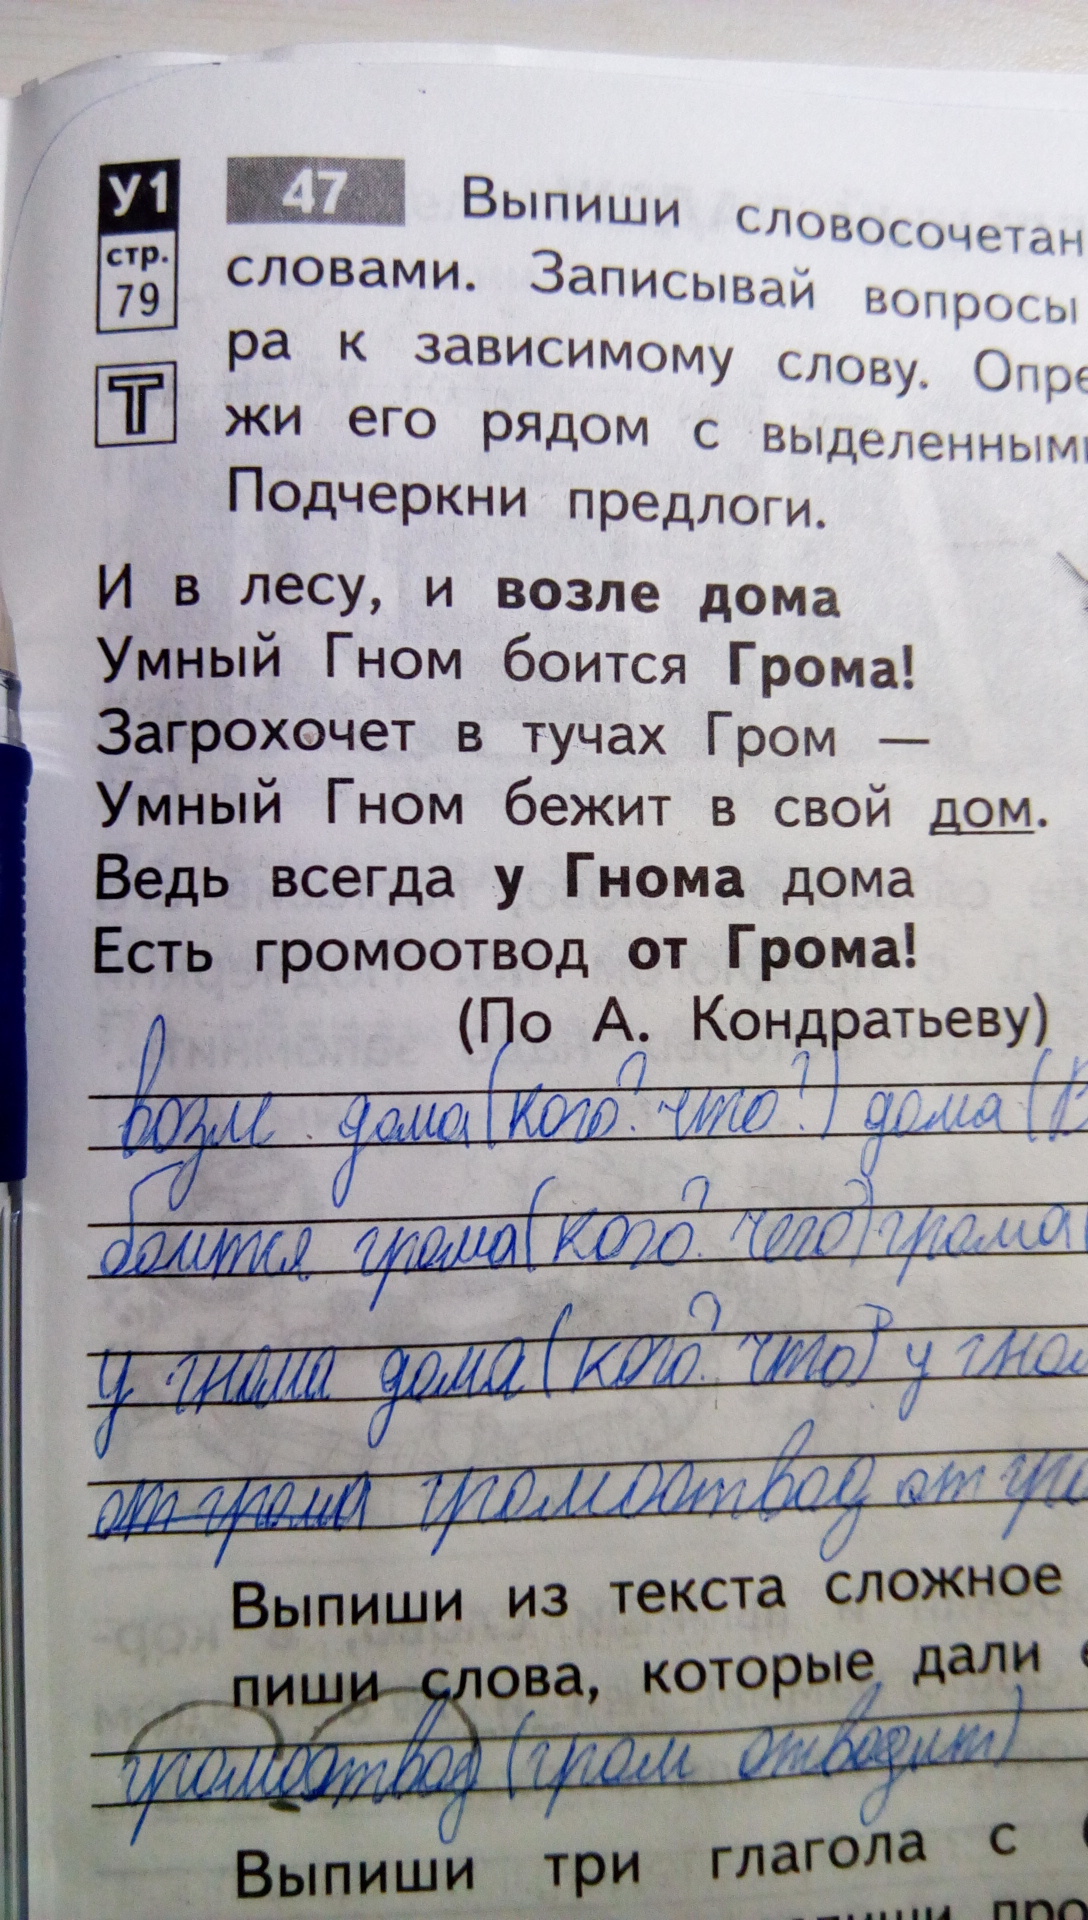 У1 47 Выпиши словосочетан
стр. словами. Записывай вопросы
79 ра к зависимому слову. Опре
Т жи его рядом с выделенным
Подчеркни предлоги.
И в лесу, и возле дома
Умный Гном боится Грома!
Загрохочет в тучах Гром —
Умный Гном бежит в свой дом.
Ведь всегда у Гнома дома
Есть громоотвод от Грома!
(По А. Кондратьеву)
возле дома (кого? что?) дома (
боится грома (кого? чего?) грома (
у гнома дома (кого? что?) у гном
от грома громоотвод от гро
Выпиши из текста сложное
пиши слова, которые дали
громоотвод (гром отводит)
Выпиши три глагола с